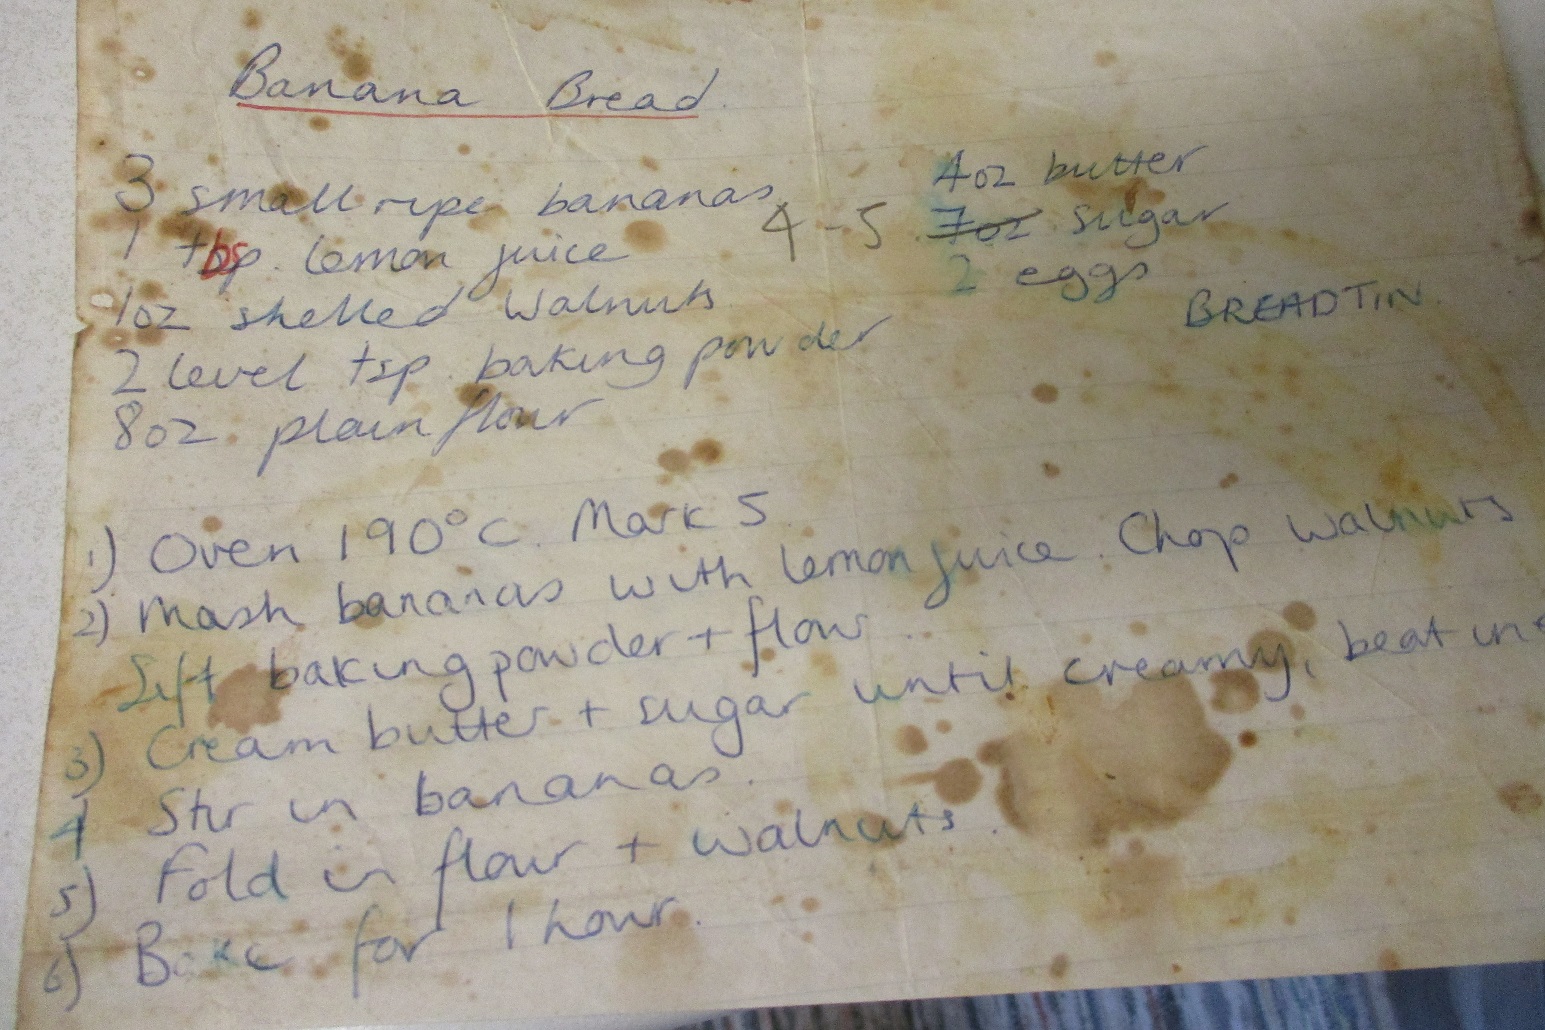 Banana Bread.
3 small ripe bananas
1 tbsp. lemon juice
1oz shelled walnuts
2 level tsp. baking powder
8oz. plain flour
4oz butter
4-5 7oz sugar
2 eggs
BREADTIN.
1) Oven 190°C. Mark 5
2) Mash bananas with lemon juice. Chop walnuts
Sift baking powder + flour..
3) Cream butter + sugar until creamy, beat in
4 Stir in bananas.
5) Fold in flour + walnuts.
6) Bake for 1 hour.